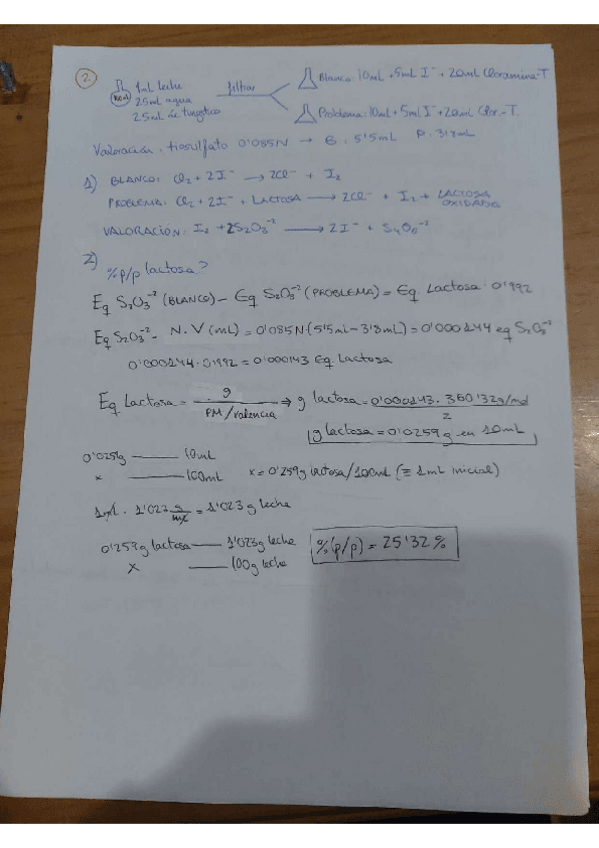 2
1mL leche
25mL agua
25mL ác. tungstico
100mL
filtrar
Blanco: 10mL + 5mL I⁻ + 20mL Cloramina-T
Problema: 10mL + 5mL I⁻ + 20mL Clor.-T
Valoración: tiosulfato 0'085N → B: 5'5mL P: 3'8mL
1) BLANCO: Cl₂ + 2I⁻ → 2Cl⁻ + I₂
PROBLEMA: Cl₂ + 2I⁻ + LACTOSA → 2Cl⁻ + I₂ + LACTOSA OXIDADA
VALORACIÓN: I₂ + 2S₂O₃⁻² → 2I⁻ + S₄O₆⁻²
2) % p/p lactosa?
Eq S₂O₃⁻² (BLANCO) - Eq S₂O₃⁻² (PROBLEMA) = Eq Lactosa · 0'992
Eq S₂O₃⁻² = N·V (mL) = 0'085N·(5'5mL - 3'8mL) = 0'000144 eq S₂O₃⁻²
0'000144 · 0'992 = 0'000143 Eq Lactosa
Eq Lactosa = g / PM/valencia ⇒ g lactosa = 0'000143 · 360'32g/mol / 2
g lactosa = 0'0259g en 10mL
0'0259g — 10mL
x — 100mL x = 0'259g lactosa/100mL (≡ 1mL inicial)
1mL · 1'023 g/mL = 1'023g leche
0'259g lactosa — 1'023g leche
x — 100g leche
%(p/p) = 25'32%